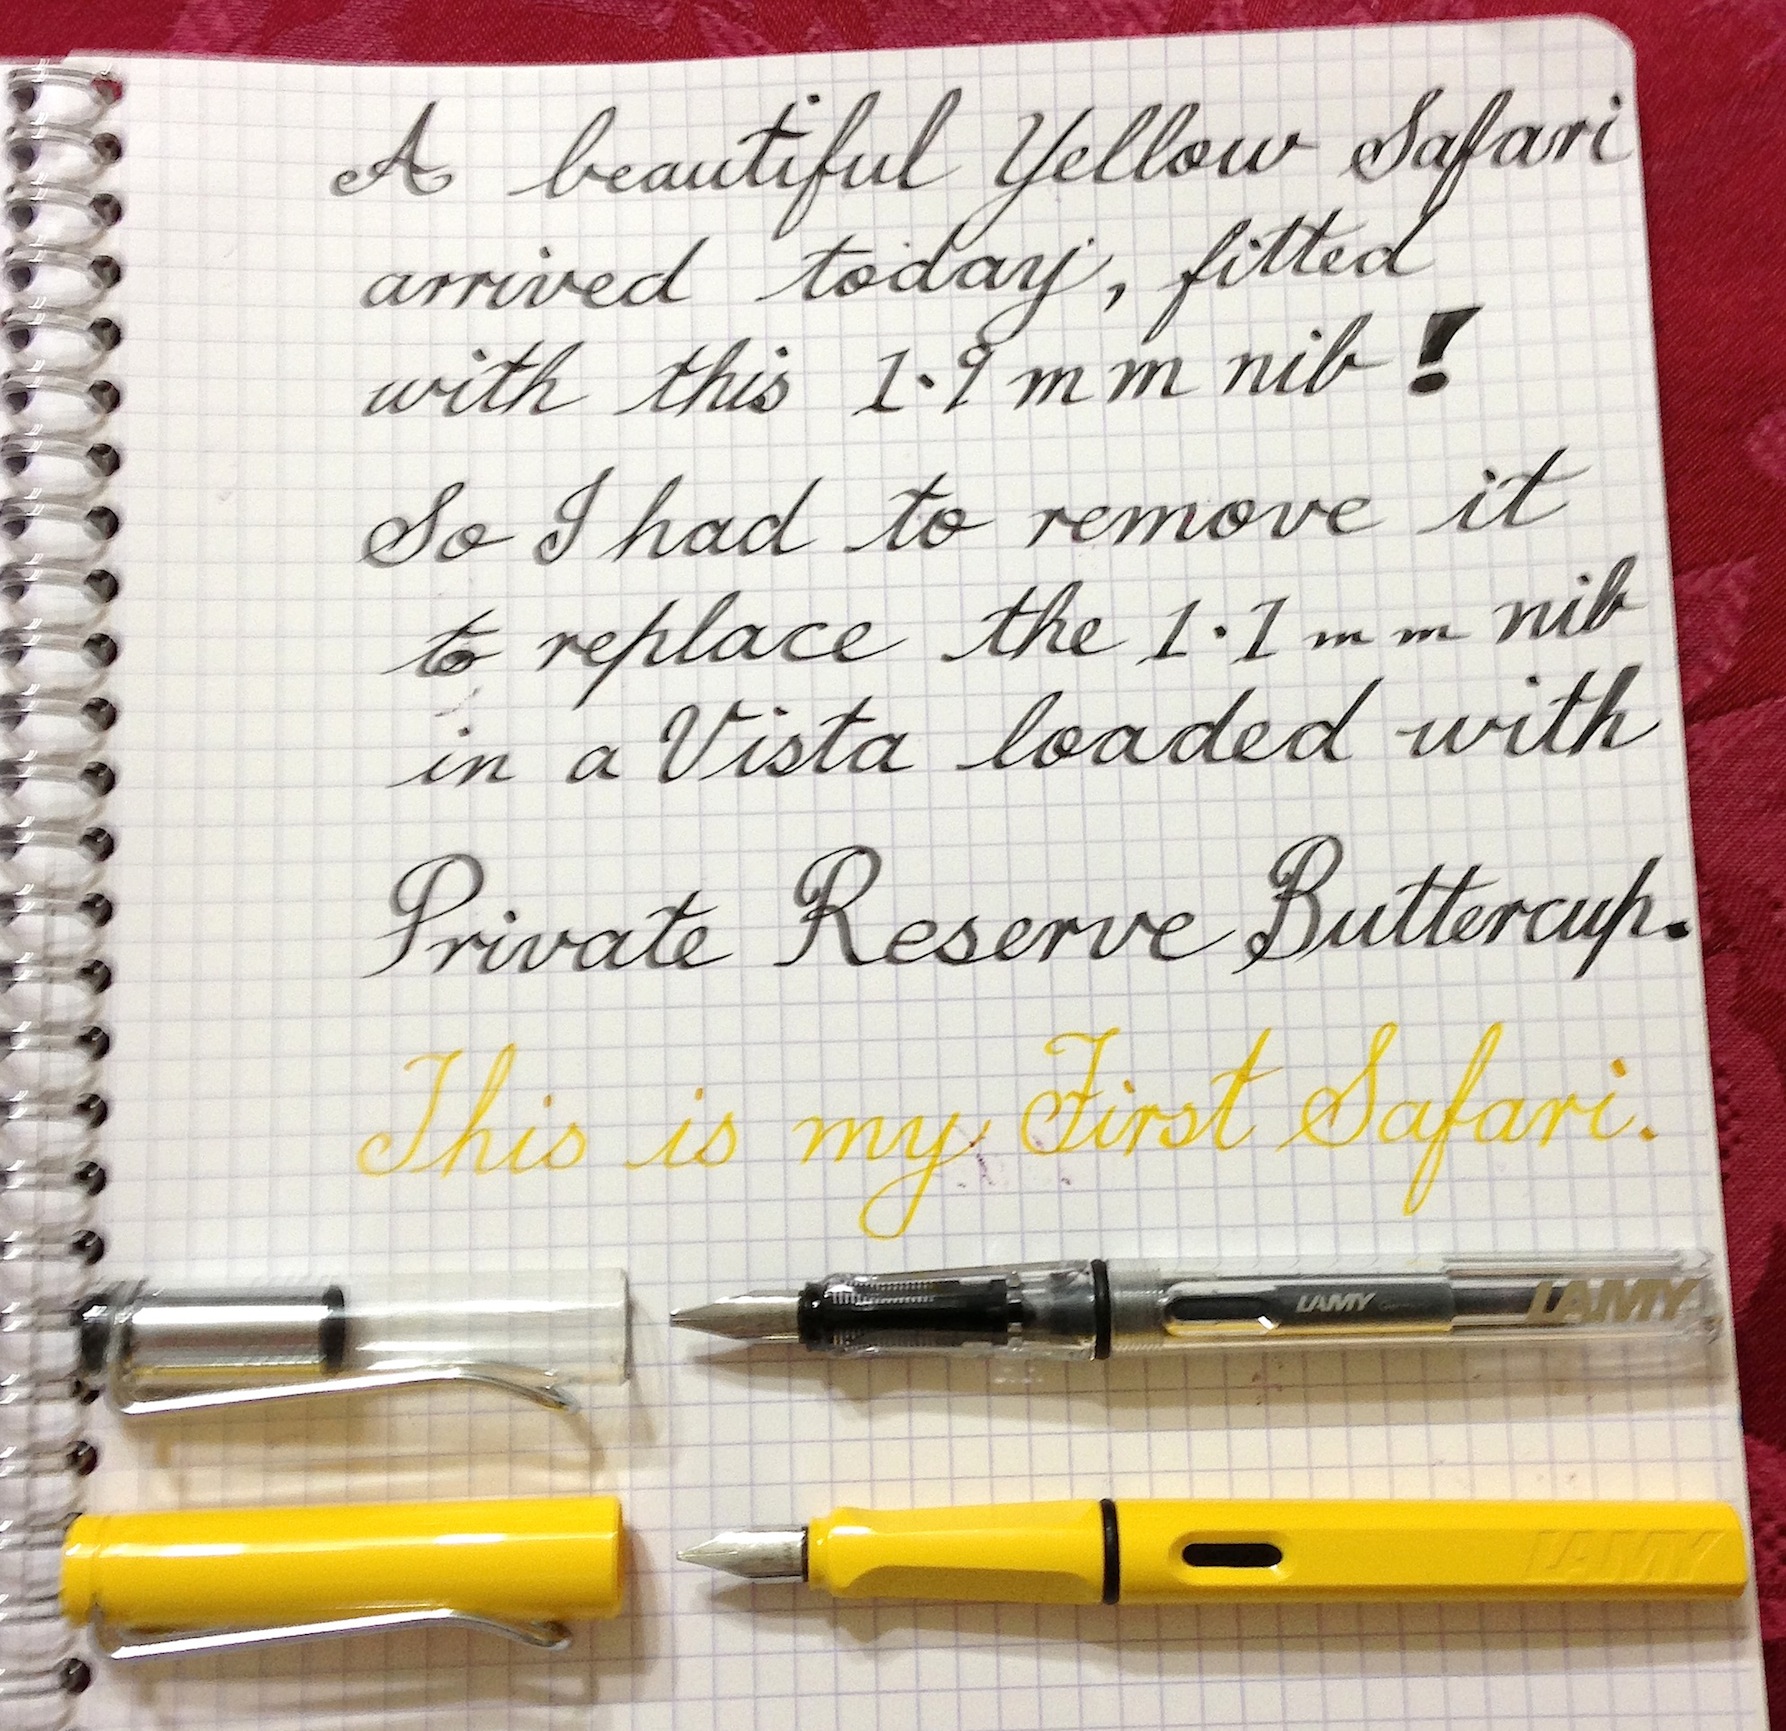 A beautiful Yellow Safari
arrived today, fitted
with this 1·9 mm nib!
So I had to remove it
to replace the 1·1 mm nib
in a Vista loaded with
Private Reserve Buttercup.
This is my First Safari.
LAMY LAMY
LAMY